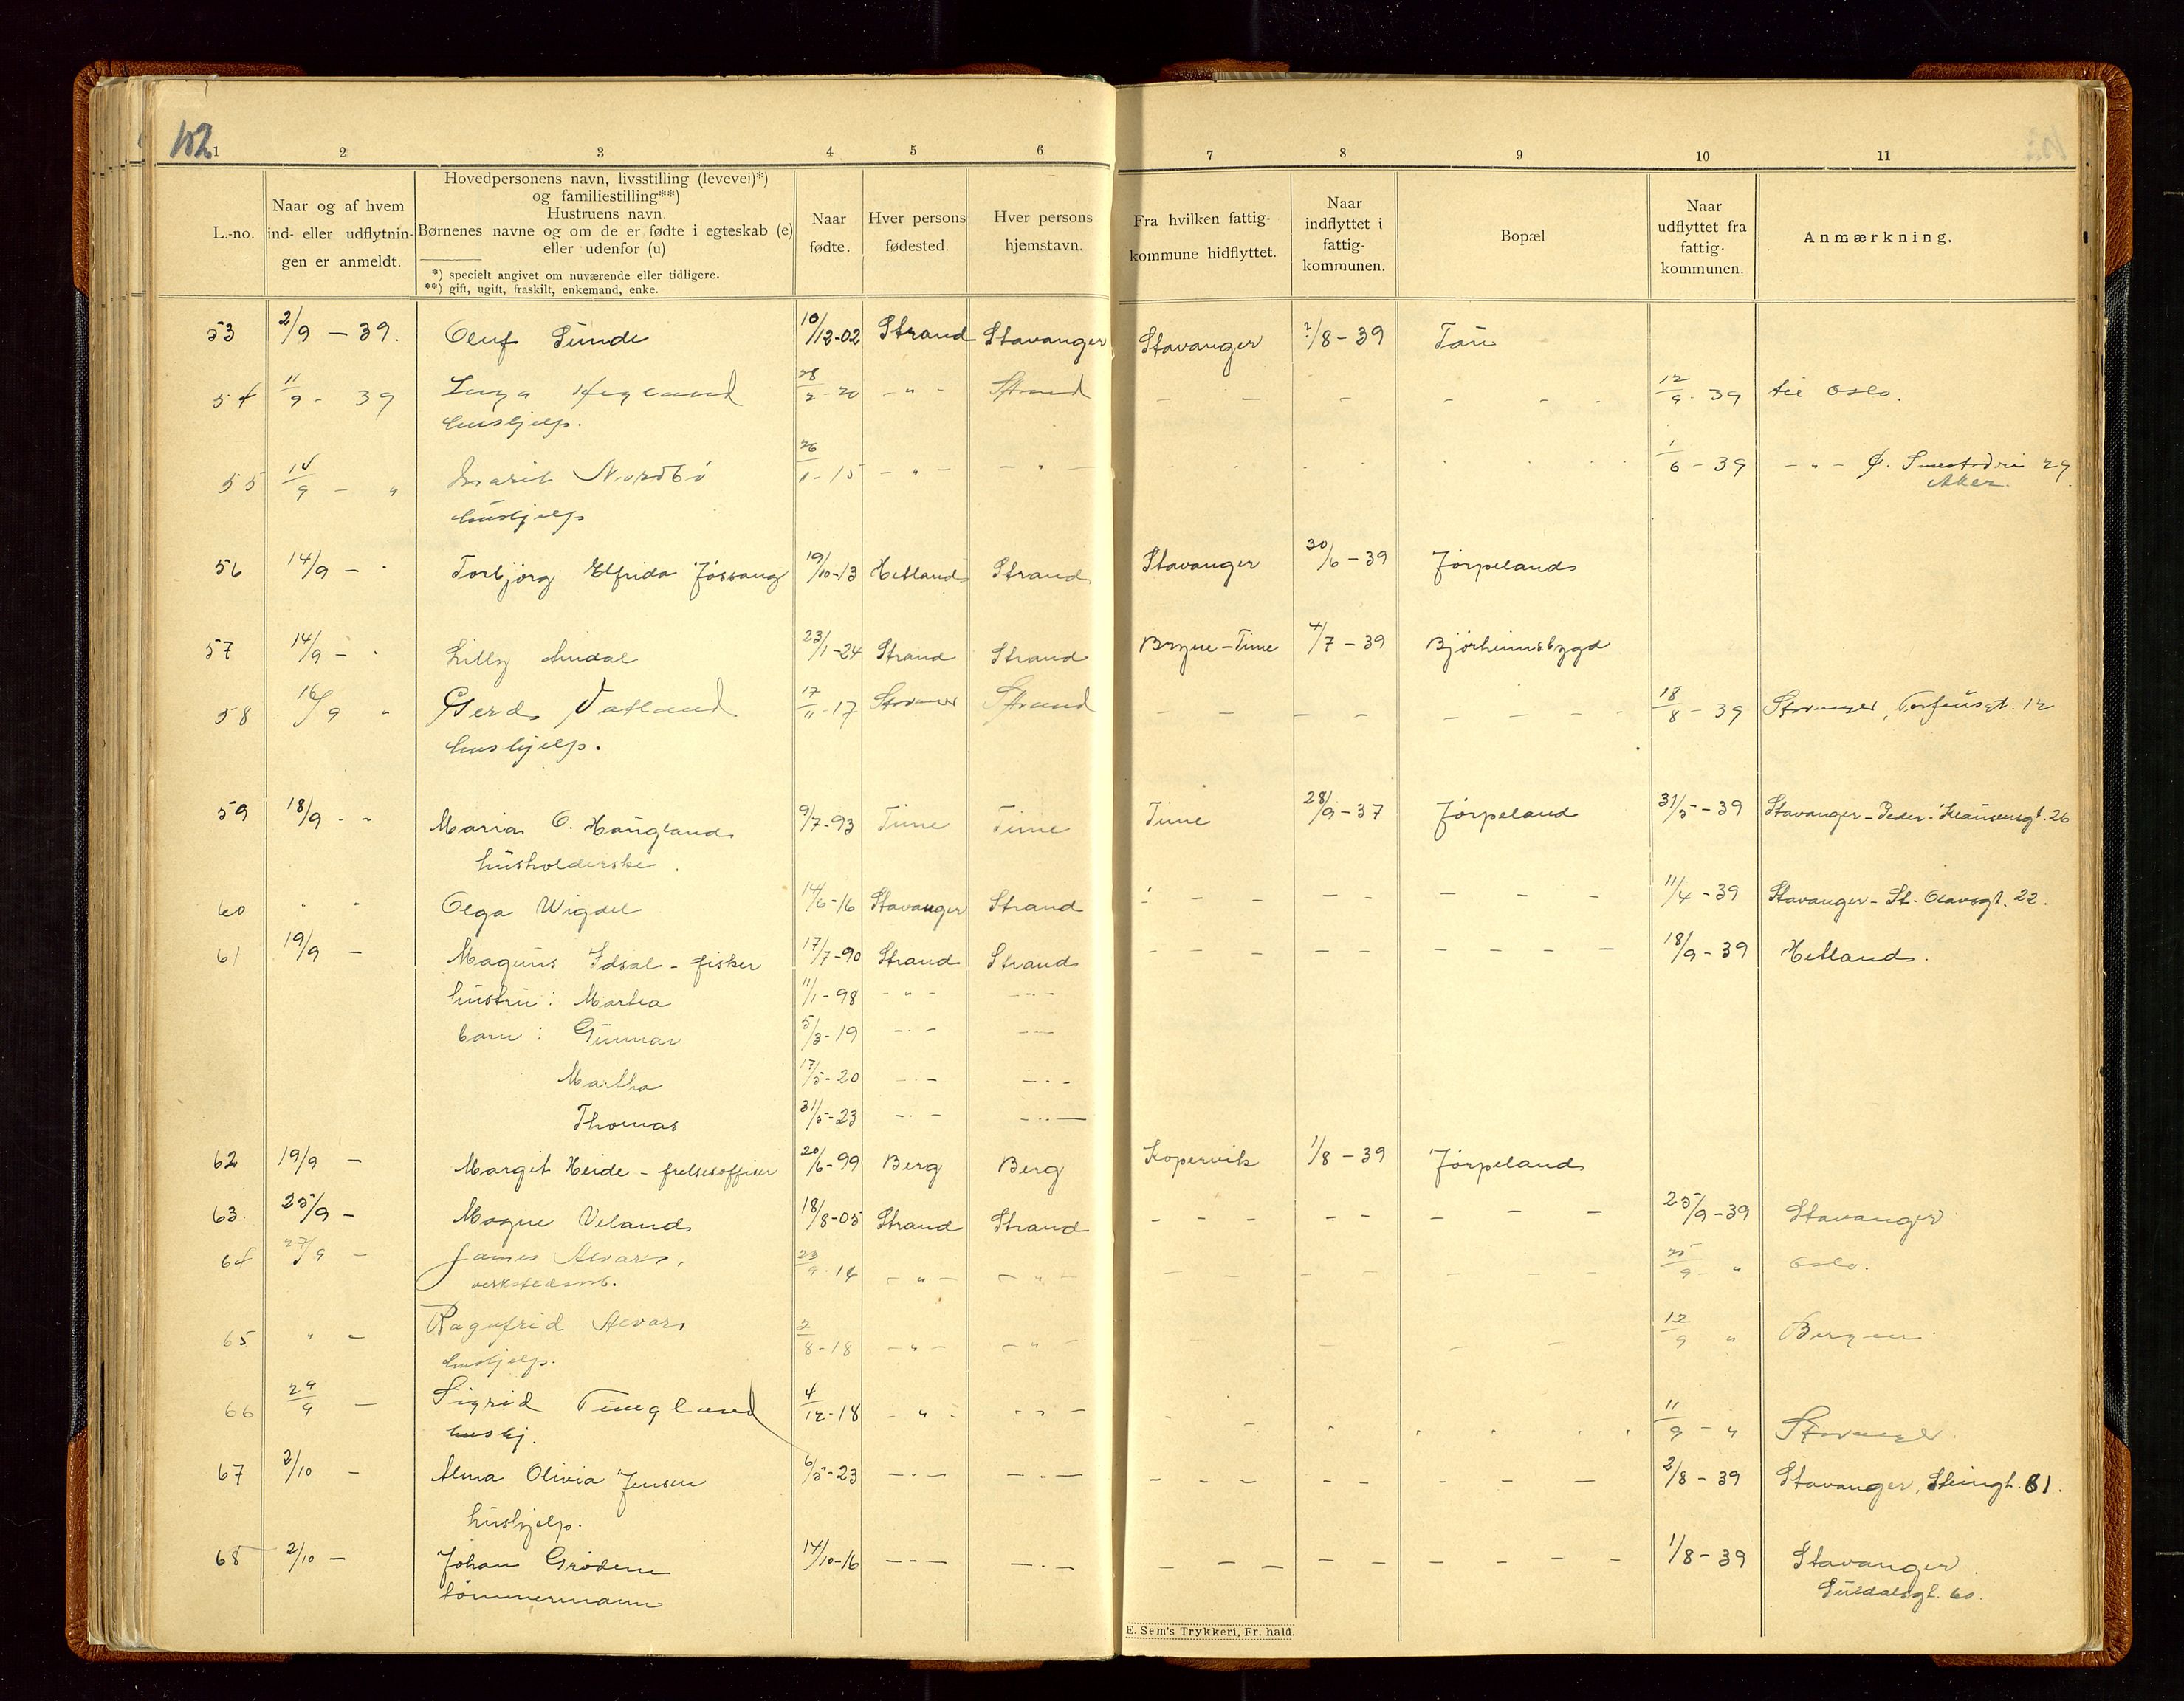 152
1 2 3 4 5 6 7 8 9 10 11
L.-no.
Naar og af hvem
ind- eller udflytnin-
gen er anmeldt.
Hovedpersonens navn, livsstilling (levevei)*)
og familiestilling**)
Hustruens navn.
Børnenes navne og om de er fødte i egteskab (e)
eller udenfor (u)
*) specielt angivet om nuværende eller tidligere.
**) gift, ugift, fraskilt, enkemand, enke.
Naar
fødte.
Hver persons
fødested.
Hver persons
hjemstavn.
Fra hvilken fattig-
kommune hidflyttet.
Naar
indflyttet i
fattig-
kommunen.
Bopæl
Naar
udflyttet fra
fattig-
kommunen.
Anmærkning.
53 2/9 - 39. Oluf Sunde 10/12-02 Strand Stavanger Stavanger ?/8 - 39 Tau
54 11/9 - 39 Inga Hegland 28/2-20 - " - Strand - - - - - - 12/9 - 39 til Oslo.
hushjelp.
55 14/9 - " Marit Nordbö 26/1-15 - " - - " - 1/6 - 39 - " - Ø. 29
hushjelp Aker.
56 14/9 - " Torbjörg Elfrida Jössang 19/10-13 Hetland Strand Stavanger 30/6 - 39 Jörpeland
57 14/9 - " Lilly Amdal 23/1-24 Strand Strand Bryne-Time 4/7 - 39 Bjørheimsbygd
58 16/9 " Gerd Vatland 17/11-17 Stavanger Strand - - - - - - - 18/8 - 39 Stavanger, Torfeusgt. 12
hushjelp.
59 18/9 - " Maria O. Haugland 9/7-93 Time Time Time 28/9-37 Jörpeland 31/5 - 39 Stavanger - Peder-Klausensgt. 26
husholderske.
60 " " Olga Wigdel 14/6-16 Stavanger Strand - - - - - - - - 11/4 - 39 Stavanger - St. Olavsgt. 22.
61 19/9 - Magnus Idsal - fisker 17/7-90 Strand Strand - - - - - - - - 18/9 - 39 Hetland.
hustru: Martha 11/1-98 - " - - " -
barn: Gunnar 5/3-19 - " - - " -
Martha 17/5-20 - " - - " -
Thomas 31/5-23 - " - - " -
62 19/9 - Margit Heide - frelsesoffiser 20/6-99 Berg Berg Kopervik 1/8 - 39 Jörpeland
63. 25/9 - Magne Veland 18/8-05 Strand Strand - - - - - - - - 25/9 - 39 Stavanger
64 27/9 - James Alvars, 23/9-14 - " - - " - - - - - - - - 25/9 " Oslo.
verkstedarb.
65 " - Ragnfrid Alvars 2/8-18 - " - - " - - - - 12/9 " Bergen.
hushjelp.
66 29/9 - Sigrid Tungland 4/12-18 - " - - " - 11/9 - " Stavanger
hushj.
67 2/10 - Alma Olivia Jensen 6/5-23 - " - - " - - - - - - - - - 2/8 - 39 Stavanger, Steingt. 81.
hushjelp.
68 2/10 - Johan Grödem 14/10-16 - " - - " - - - - - - - - - - 1/8 - 39 Stavanger.
tömmermann Suldalsgt. 60.
E. Sem's Trykkeri, Fr. hald.